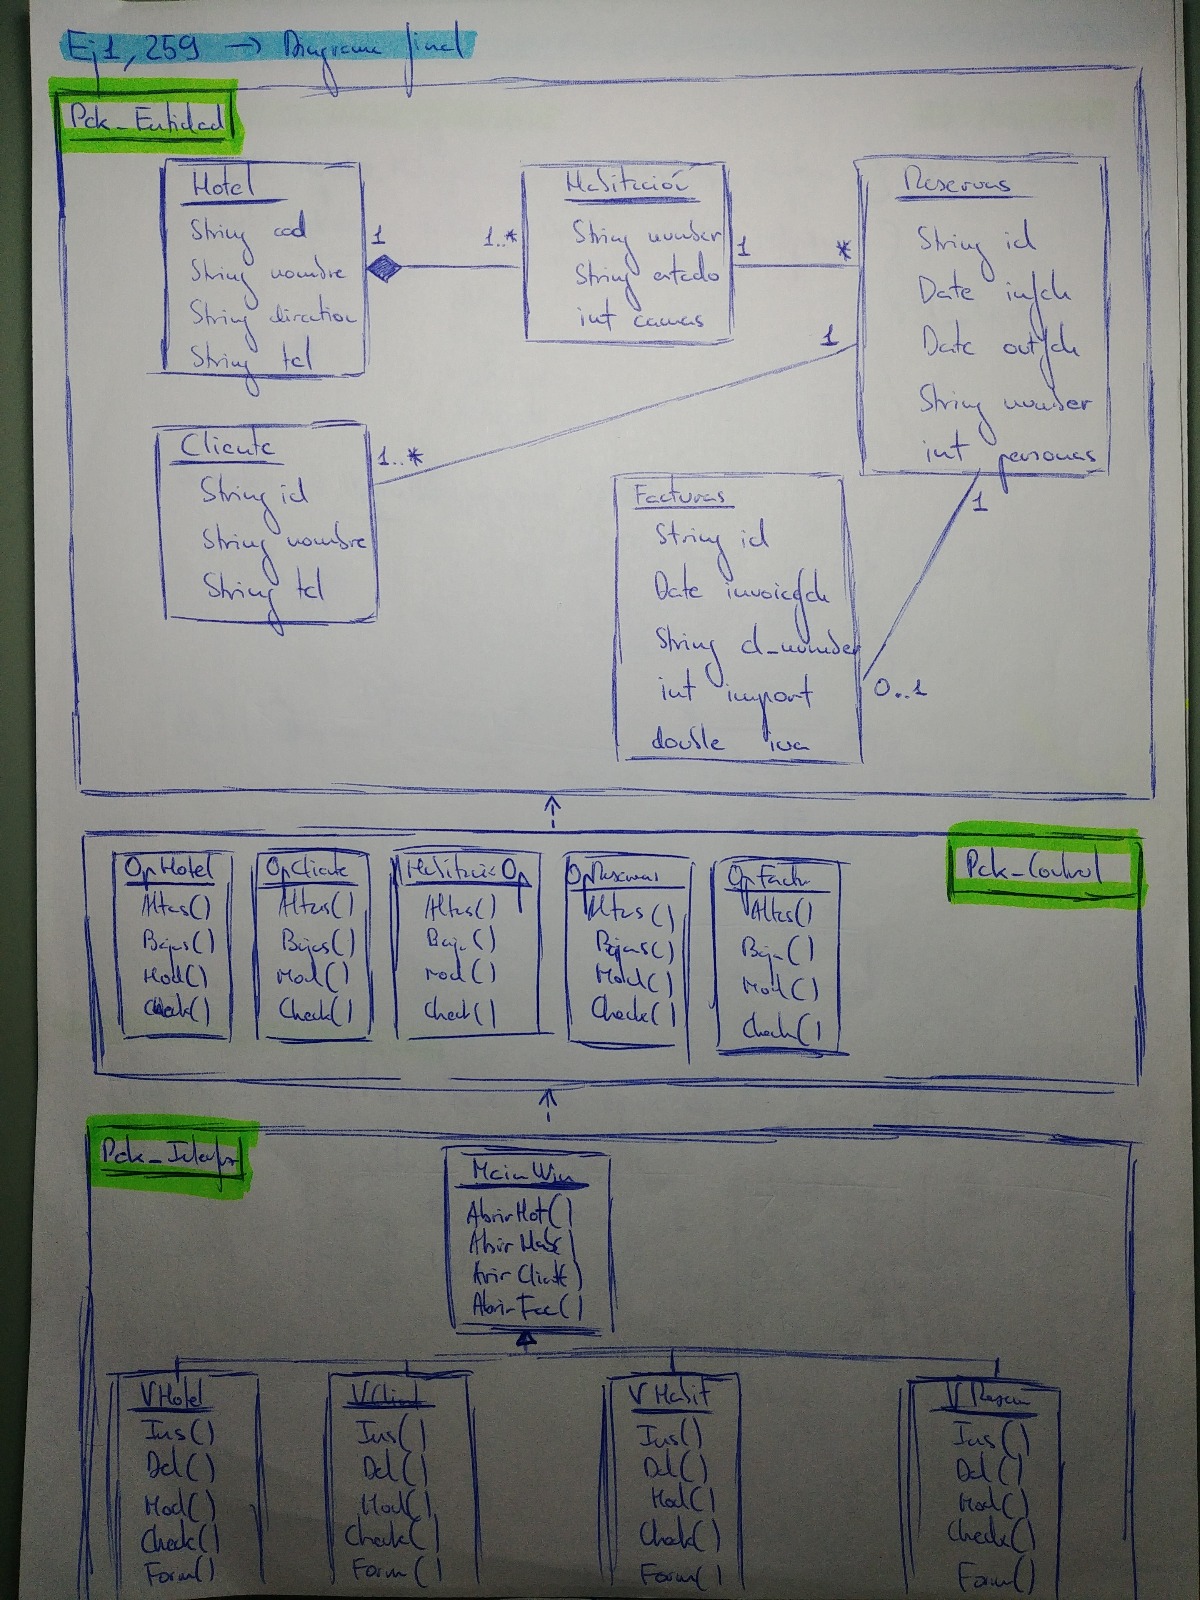 Ej1, 259 → Diagrama final
Pck_Entidad
Hotel
String cod
String nombre
String direction
String tel
1
1..*
Habitación
String number
String estado
int camas
1
*
Reservas
String id
Date infch
Date outfch
String number
int personas
1
1..*
Cliente
String id
String nombre
String tel
Facturas
String id
Date invoicefch
String cl_number
int import
double iva
1
0..1
Pck_Control
OpHotel
Altas()
Bajas()
Mod()
Check()
OpCliente
Altas()
Bajas()
Mod()
Check()
HabitaciónOp
Altas()
Baja()
Mod()
Check()
OpReservas
Altas()
Bajas()
Mod()
Check()
OpFactu
Altas()
Baja()
Mod()
Check()
Pck_Interfaz
MainWin
AbrirHot()
AbrirHab()
AbrirClient()
AbrirFac()
VHotel
Ins()
Del()
Mod()
Check()
Form()
VClient
Ins()
Del()
Mod()
Check()
Form()
VHabit
Ins()
Del()
Mod()
Check()
Form()
VReserv
Ins()
Del()
Mod()
Check()
Form()